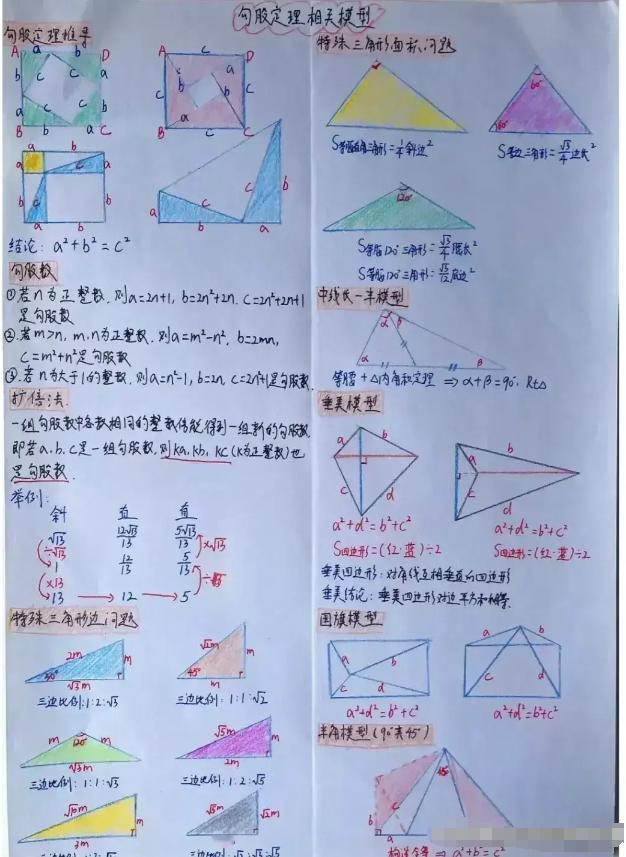 勾股定理相关模型
勾股定理推导
结论: a²+b²=c²
勾股数
①若n为正整数, 则a=2n+1, b=2n²+2n, c=2n²+2n+1
是勾股数
②若m>n, m、n为正整数, 则a=m²-n², b=2mn,
c=m²+n²是勾股数
③若n为大于1的整数, 则a=n²-1, b=2n, c=n²+1是勾股数.
扩倍法
一组勾股数中各数相同的整数倍能得到一组新的勾股数.
即若a、b、c是一组勾股数, 则ka, kb, kc (k为正整数) 也
是勾股数.
举例:
斜 直 直
√13 12√13/13 5√13/13
÷√13 ×√13
1 12/13 5/13
×13
13 → 12 → 5
特殊三角形边问题
2m m √3m
√2m 45° m m
三边比例:1:2:√3
三边比例: 1:1:√2
m 120° m √3m
√5m m 2m
三边比例: 1:1:√3
三边比例: 1:2:√5
√10m m 3m
√2m m
特殊三角形面积问题
60° 60°
S等腰直角三角形=1/4斜边²
S等边三角形=√3/4边长²
120°
S等腰120°三角形=√3/4腰长²
S等腰120°三角形=√3/12底边²
中线长一半模型
α β α β
等腰+△内角和定理 ⇒ α+β=90° Rt△
垂美模型
a b c d
a b c d
a²+d²=b²+c²
a²+d²=b²+c²
S四边形=(红·蓝)÷2
S四边形=(红·蓝)÷2
垂美四边形: 对角线互相垂直的四边形
垂美结论: 垂美四边形对边平方和相等.
国旗模型
a b c d
a b c d
a²+d²=b²+c²
a²+d²=b²+c²
半角模型(90°夹45°)
45°
b c a
构造全等 ⇒ a²+b²=c²